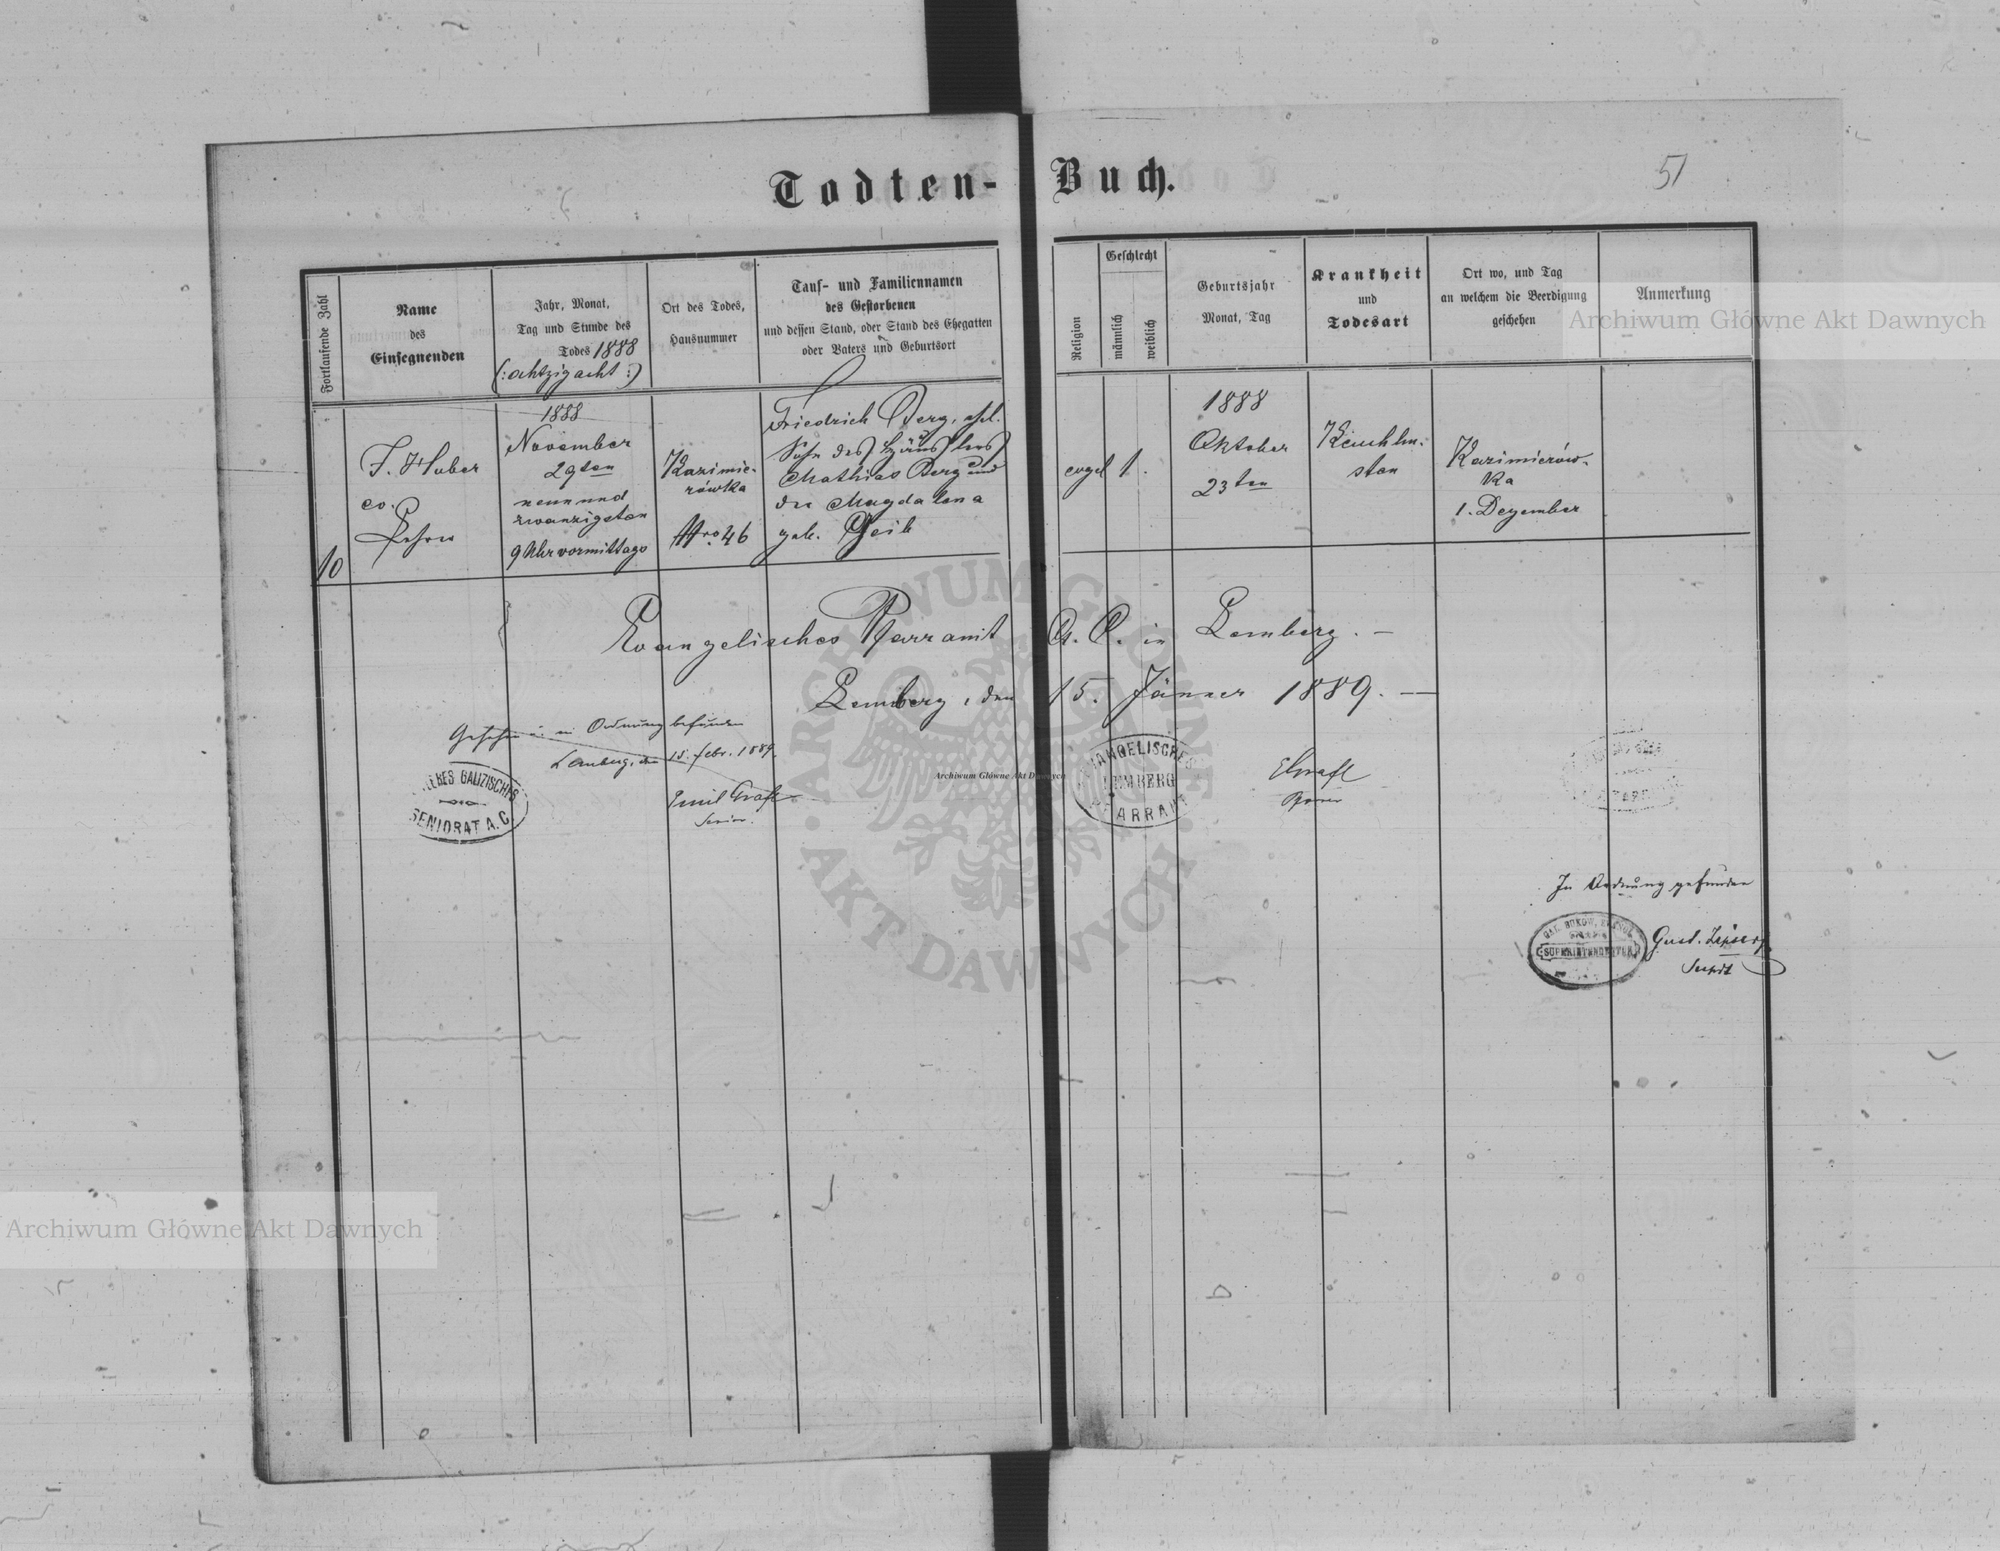 Todten-Buch.
51
Fortlaufende Zahl
Name
des
Einsegnenden
Jahr, Monat,
Tag und Stunde des
Todes 1888
(:achtzigacht:)
Ort des Todes,
Hausnummer
Tauf- und Familiennamen
des Gestorbenen
und dessen Stand, oder Stand des Ehegatten
oder Vaters und Geburtsort
Religion
Geschlecht
männlich
weiblich
Geburtsjahr
Monat, Tag
Krankheit
und
Todesart
Ort wo, und Tag
an welchem die Beerdigung
geschehen
Anmerkung
10
J. Huber
ev.
1888
November
29ten
neunund
zwanzigsten
9 Uhr vormittags
Kazimie-
rówka
Nro. 46
Friedrich Berg, ehel.
Sohn des
Mathias Berg und
der Magdalena
geb. Geib
evgel
1.
1888
Oktober
23ten
Keuchhu-
sten
Kazimierów-
ka
1. Dezember
Evangelisches Pfarramt A. C. in Lemberg. —
Lemberg, den 15. Jänner 1889. —
Gesehen u. in Ordnung befunden
Lemberg, den 15. Febr. 1889.
Emil Grafl
Senior.
GALIZISCHES
SENIORAT A.C.
EVANGELISCHES
LEMBERG
PFARRAMT
EGrafl
In Ordnung gefunden
SUPERINTENDENTUR
Gust. Zipser
Supdt
ARCHIWUM GŁÓWNE
AKT DAWNYCH
Archiwum Główne Akt Dawnych
Archiwum Główne Akt Dawnych
Archiwum Główne Akt Dawnych